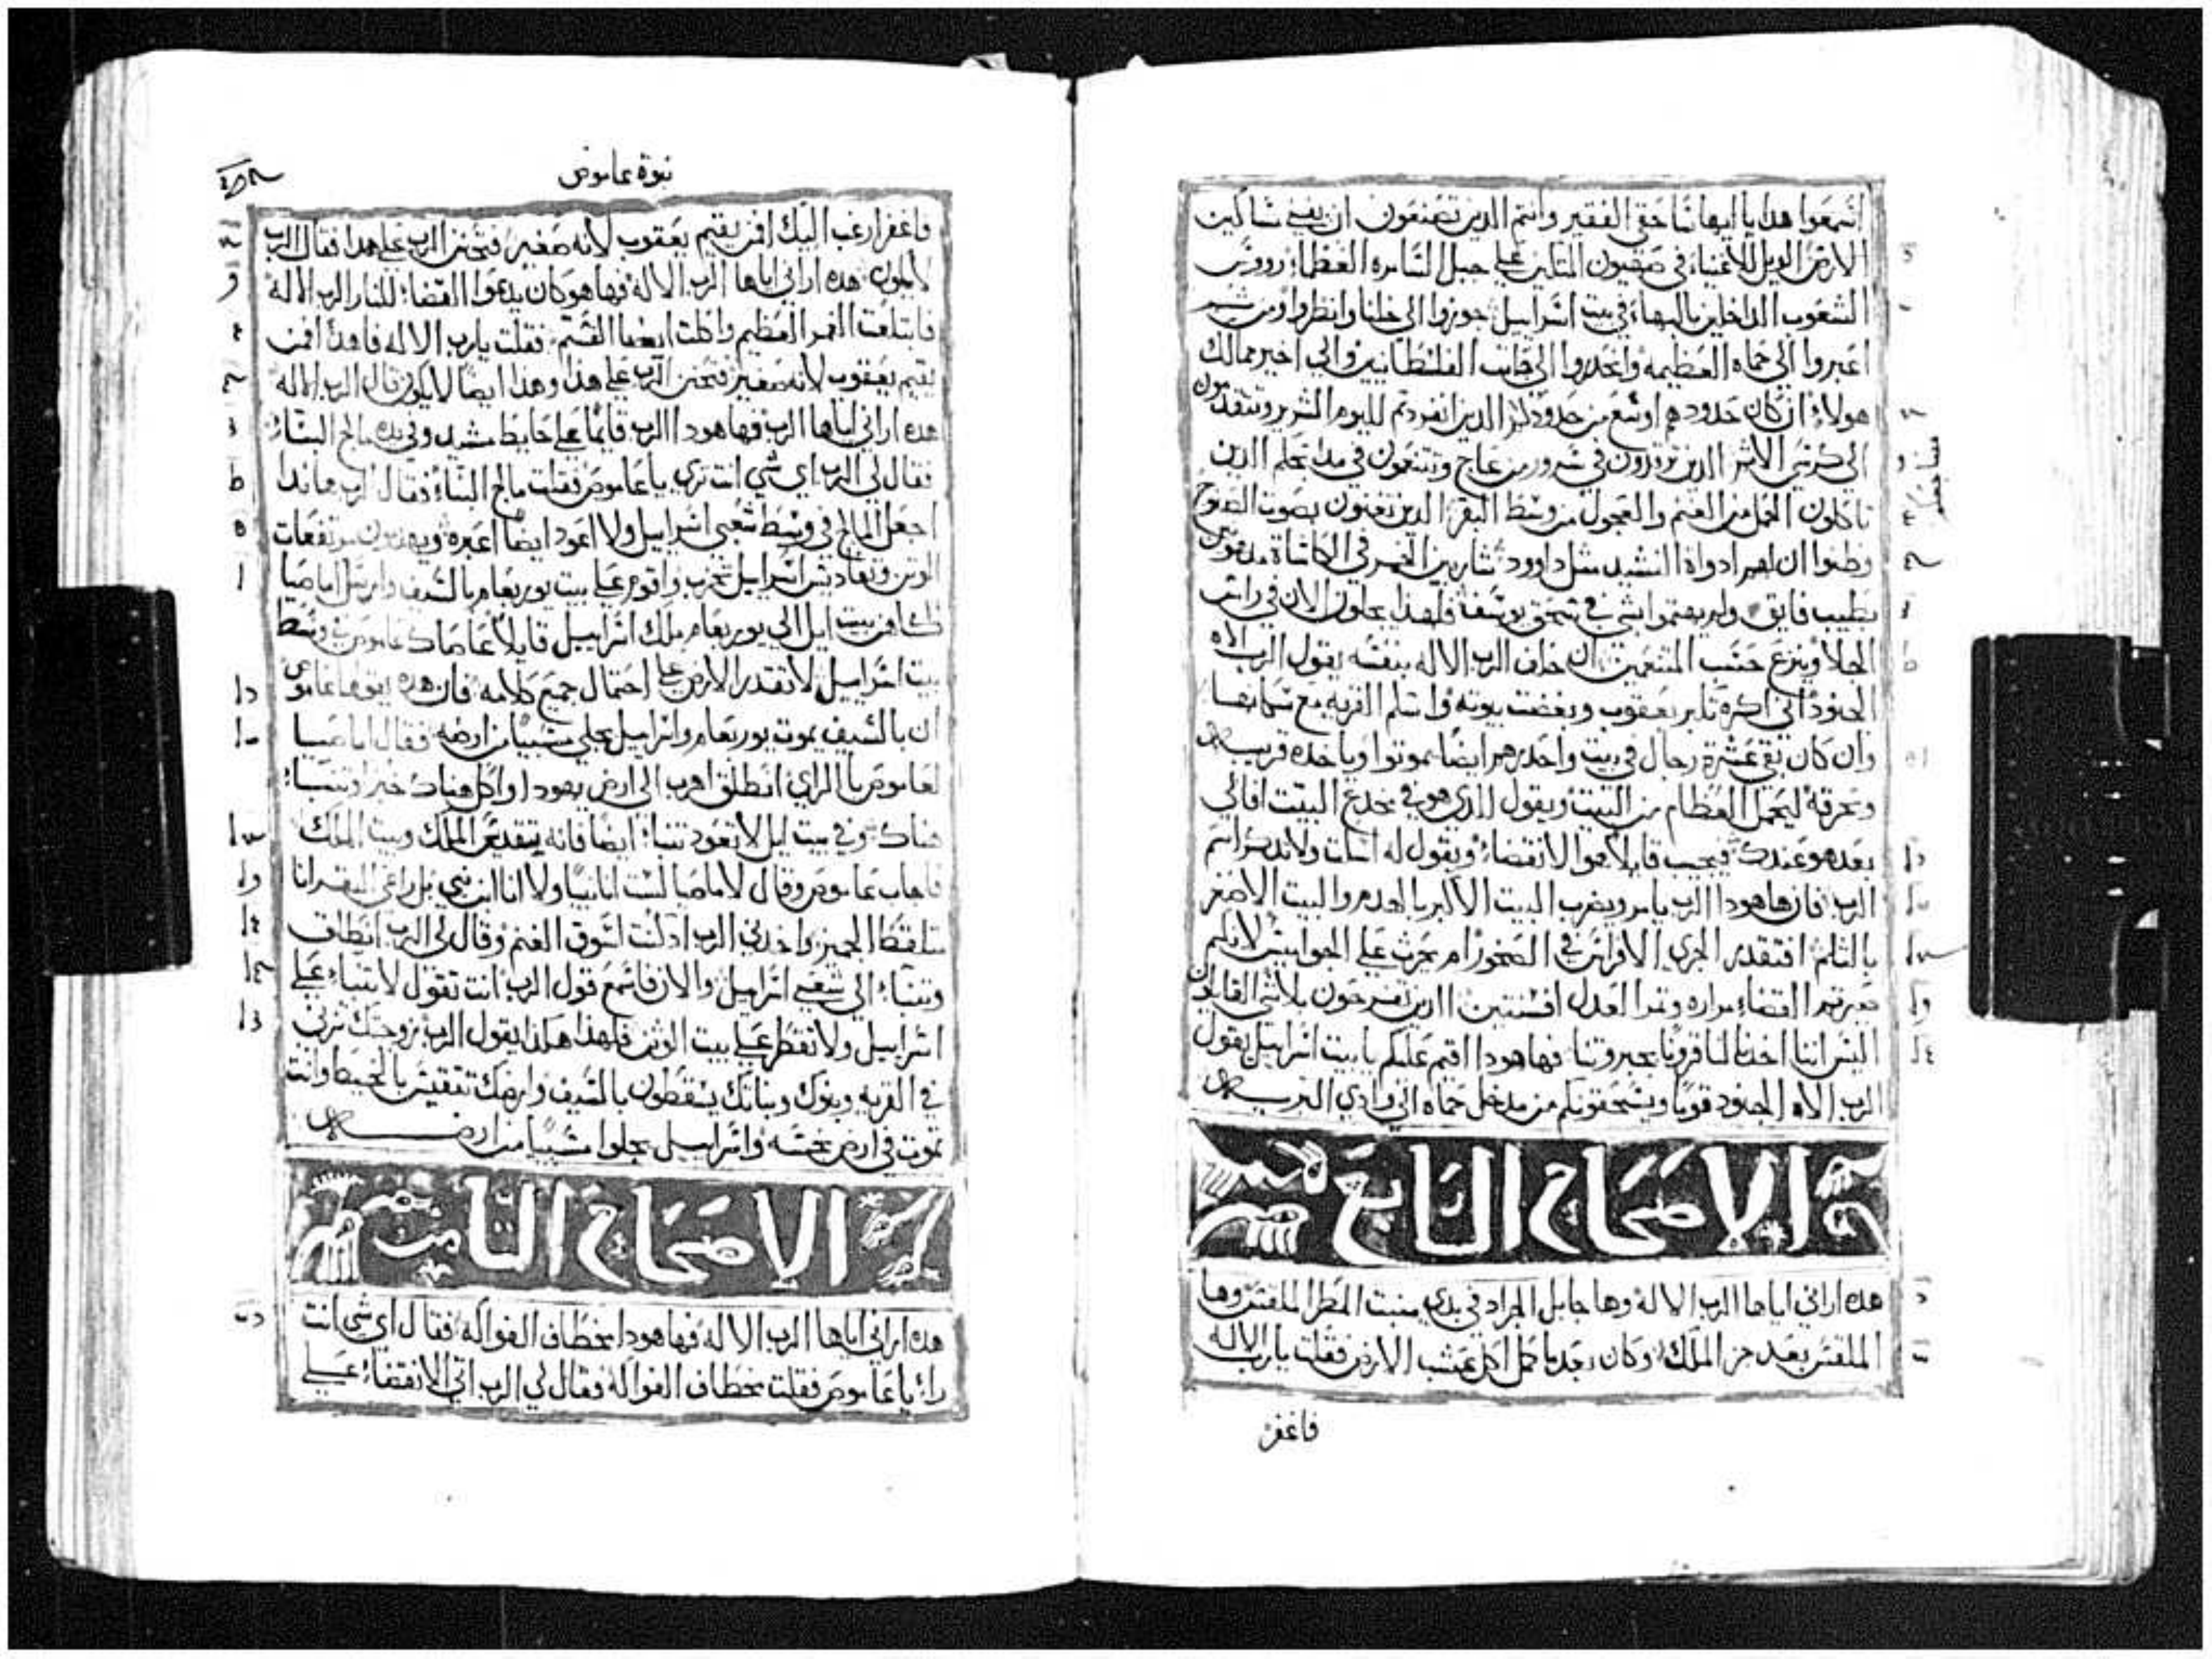 اسمعوا هدا يا ايها ساحق الفقير وانتم الدين تصنعون ان يفني ساكين
الارض الويل للاغنياء في صهيون المتكلين علي جبل السامره العظماء رووس
الشعوب الداخلين بالبهاء في بيت اسراييل جوزوا الي خلنا وانظروا ومن ثم
اعبروا الي حماه العظيمه وانحدروا الي جات الفلسطانيين والي اخير ممالك
هولاء ان كان حدودهم اوسع من حدودكم الدين انفردتم لليوم الشرير وتتقدمون
الي كرسي الاثم الدين ترقدون في سرور من عاج وتتنعمون في مداجعكم الدين
تاكلون الحمل من الغنم والعجول من وسط البقر الدين تغنون بصوت
وظنوا ان لهم ادواة النشيد مثل داوود شاربين الخمر في الكاسات مدهونين
بطيب فايق ولم يهتموا بشي في سحق يوسف فلهدا يجلون الان في راس
الجلا وينزع حسب المتنعمين ان حلف الرب الاله بنفسه يقول الرب الاه
الجنود اني اكره تكبر يعقوب وبغضت بيوته واسلم القريه مع سكانها
وان كان بقي عشرة رجال في بيت واحد هم ايضا يموتوا وياخده قريبه
ويحرقه ليحمل العظام من البيت ويقول للدي هو في مخدع البيت افالي
بعد هو عندك فيجيب قايلا هوا الانقضاء ويقول له اسكت ولا تدكر اسم
الرب فان ها هودا الرب يامر ويضرب البيت الاكبر بالهدم والبيت الاصغر
بالثلم افتقدر الجري الافراس في الصخور ام يحرث علي الجواميس لانكم
صيرتم القضاء مراره وثمر العدل افسنتين الدين تفرحون بلا شي القايلون
اليس اننا اخدنا لنا قرونا بجبروتنا فها هودا اقيم عليكم يا بيت اسراييل يقول
الرب الاه الجنود قوما ويسحقونكم من مدخل حماه الي وادي البريه
الاصحاح السابع
هده اراني اياها الرب الاله وها جابل الجراد في بدي منبت المطر الملقس وها
الملقس بعد جز الملك وكان بعد ما كمل اكل عشب الارض فقلت يارب الاله
فاغفر
نبوة عاموص
فاغفر ارغب اليك افمن يقيم يعقوب لانه صغير فتحنن الرب علي هدا فقال الرب
لا يكون هده اراني اياها الرب الاله فها هو كان يدعوا القضاء للنار الرب الاله
فابتلعت الغمر العظيم واكلت ايضا القسم فقلت يارب الاله فاهدأ افمن
يقيم يعقوب لانه صغير فتحنن الرب علي هدا وهدا ايضا لا يكون قال الرب الاله
هده اراني اياها الرب فها هودا الرب قايما علي حايط مشيد وفي يده مالج البناء
فقال لي الرب اي شي انت تري يا عاموص فقلت مالج البناء فقال الرب هاندا
اجعل المالج في وسط شعبي اسراييل ولا اعود ايضا اعبره ويهدمون مرتفعات
الوثن وتقاديس اسراييل تخرب واقوم علي بيت يوربعام بالسيف وارسل اماصيا
كاهن بيت ايل الي يوربعام ملك اسراييل قايلا عاصاك عاموص في وسط
بيت اسراييل لا تقدر الارض علي احتمال جميع كلامه فان هده يقوها عاموص
ان بالسيف يموت يوربعام واسراييل يجلي مسبيا من ارضه فقال اماصيا
لعاموص يا الراي انطلق اهرب الي ارض يهودا واكل هناك خبز وتنباء
هناك وفي بيت ايل لا تعود تتنباء ايضا فانه يتقدس الملك وبيت الملك
فاجاب عاموص وقال لاماصيا لست انا نبيا ولا انا ابن نبي بل راعي البقر انا
ملتقطا الجميز واخدني الرب اد كنت اسوق الغنم وقال لي الرب انطلق
وتنباء الي شعبي اسراييل والان فاسمع قول الرب انت تقول لا تتنباء علي
اسراييل ولا تقطر علي بيت الوثن فلهدا هكدا يقول الرب زوجتك تزني
في القريه وبنوك وبناتك يسقطون بالسيف وارضك تنقيس بالخيط وانت
تموت في ارض نجسه واسراييل يجلوا مسبيا من ارضه
الاصحاح الثامن
هده اراني اياها الرب الاله فها هودا بخطاف الفواكه فقال اي شي انت
راء يا عاموص فقلت بخطاف الفواكه فقال لي الرب اتي الانقضاء علي